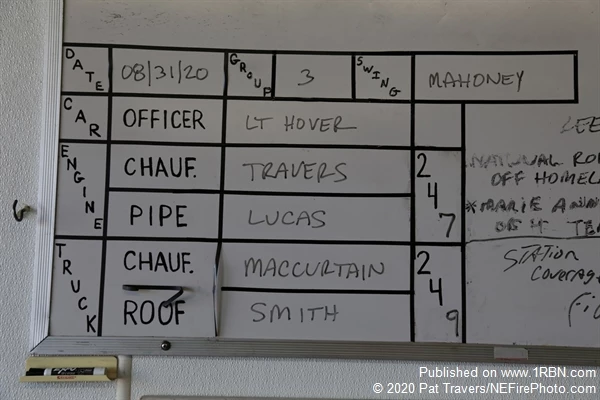 DATE 08/31/20 GROUP 3 SWING MAHONEY
CAR OFFICER LT HOVER
ENGINE CHAUF. TRAVERS 247
PIPE LUCAS
TRUCK CHAUF. MACCURTAIN 249
ROOF SMITH
OFF
STATION
Published on www.1RBN.com
© 2020 Pat Travers/NEFirePhoto.com